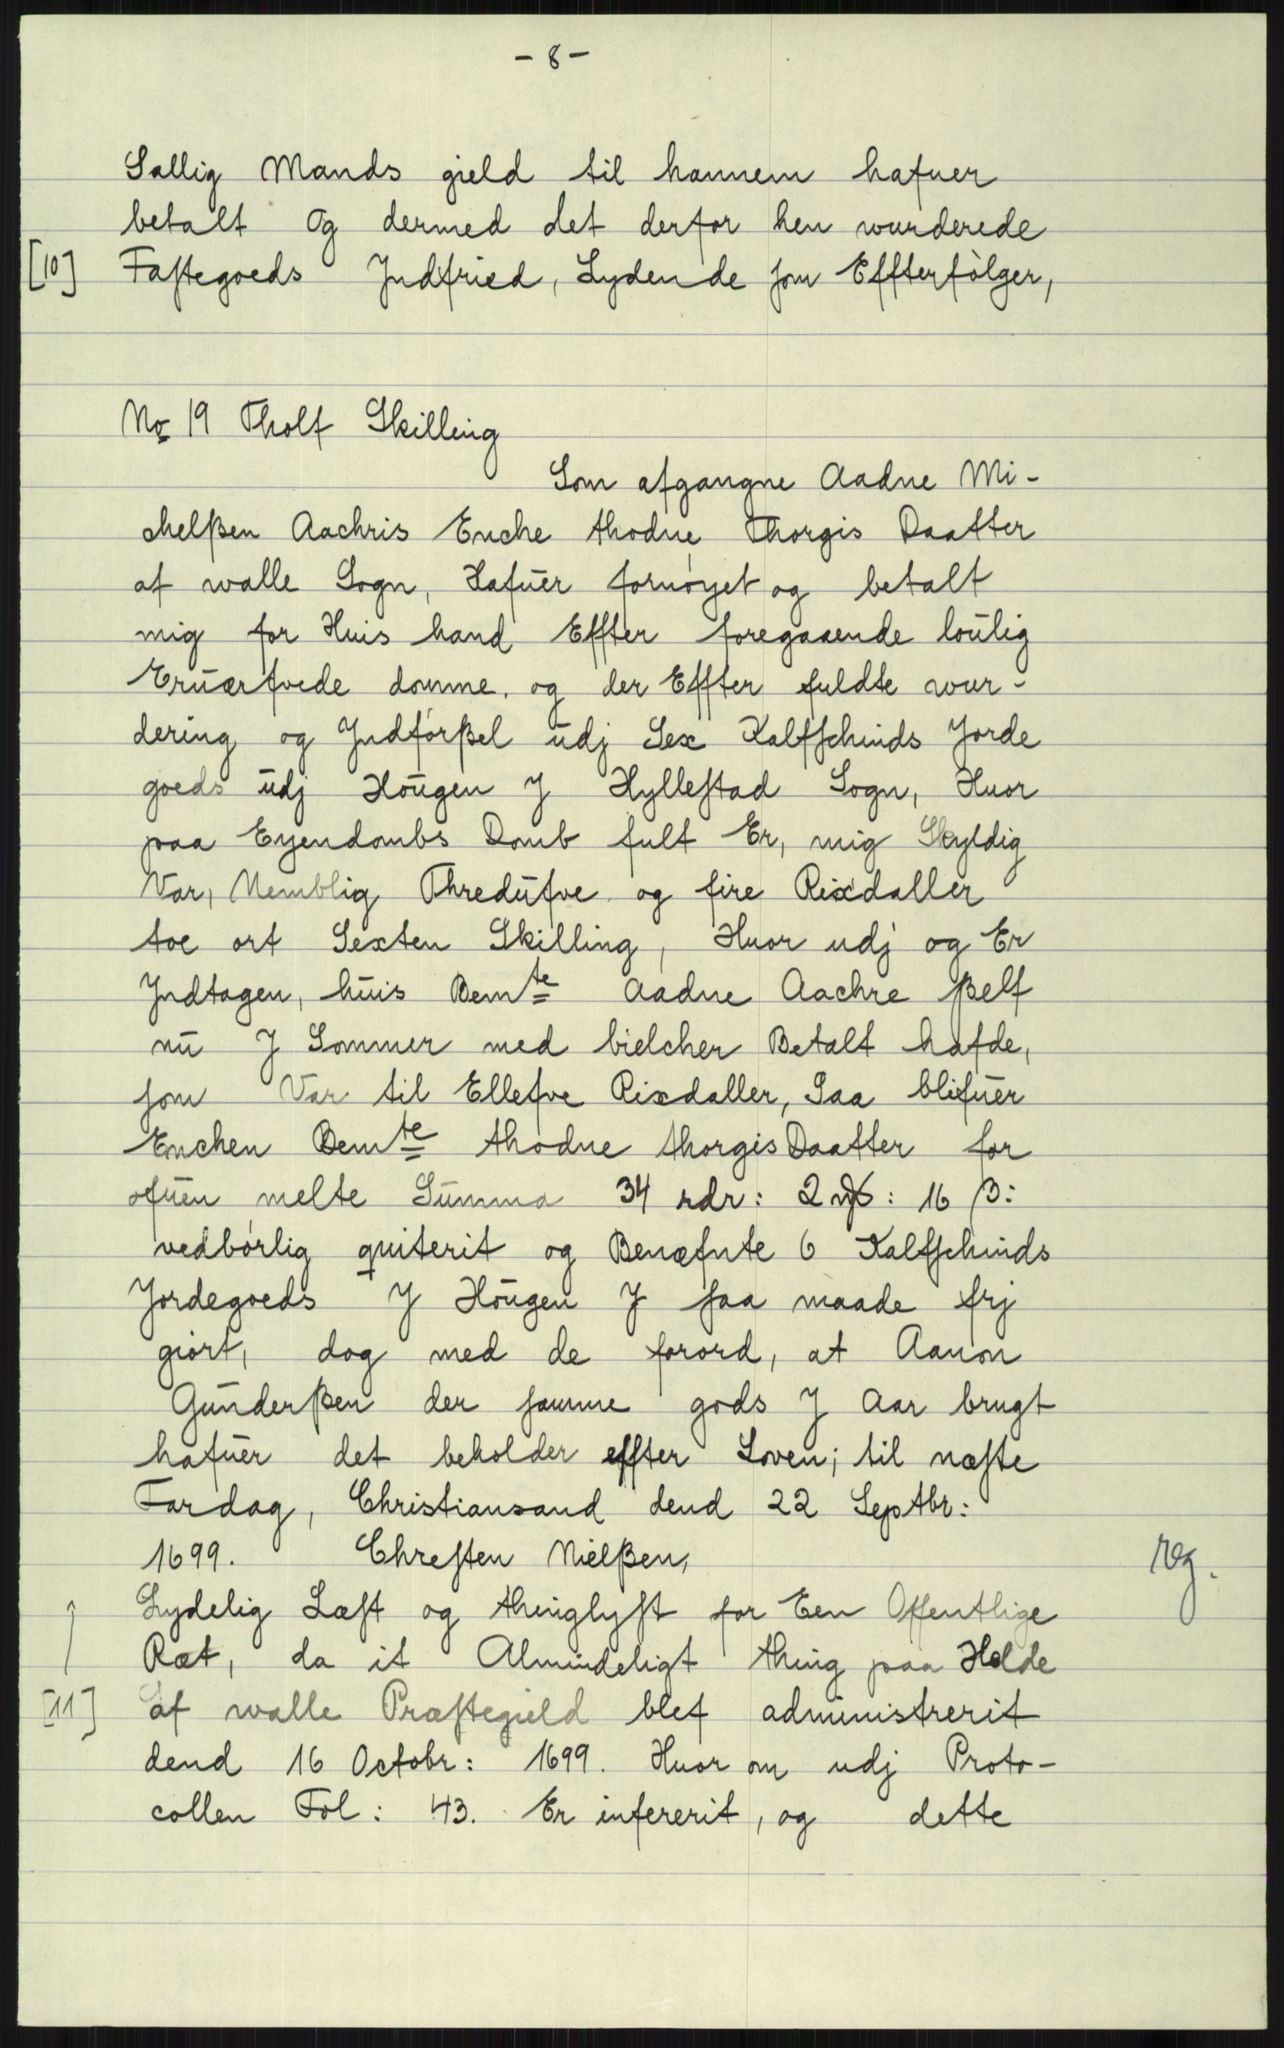 - 8 -
Sallig Mands gield til hannem hafuer
betalt Og dermed det derfor hen wurderede
[10] Faſtegoeds Jndfried, Lydende ſom Effterfölger,
No 19 Tholf Skilling
Som afgangne Aadne Mi-
chelßen Aachris Enche thodne Thorgis Daatter
af walle Sogn, Hafuer fornöyet og betalt
mig for Huis hand Effter foregaaende loulig
Eruærfvede domme, og der Effter fuldte wur-
dering og Jndförßel udj Sex Kalfſchinds Jorde
goeds udj Hougen J Hylleſtad Sogn, Huor
paa Eyendombs Domb fult Er, mig Skyldig
Var, Nemblig Thredufve og fire Rixdaller
toe ort Sexten Skilling, Huor udj og Er
Jndtagen, huis Bemte Aadne Aachre ßelf
nu J Sommer med bielcher Betalt hafde,
ſom Var til Ellefve Rixdaller, Saa blifuer
Enchen Bemte thodne thorgis Daatter for
ofuen melte Summa 34 rdr: 2 : 16 β:
vedbörlig quiterit og Benæfnte 6 Kalfſchinds
Jordegoeds J Hougen J ſaa maade frj
giort, dog med de forord, at Aanon
Gunderßen der ſamme gods J Aar brugt
hafuer det beholder effter Loven; til næſte
Fardag, Christiansand dend 22 Septbr:
1699. Chreſten Nielßen, reg.
Lydelig Læſt og thinglyſt for Een Offentlige
Ræt, da it Almindeligt thing paa Helde
[11] af walle Præſtegield blef administrerit
dend 16 Octobr: 1699. Huor om udj Proto-
collen Fol: 43. Er inſererit, og dette